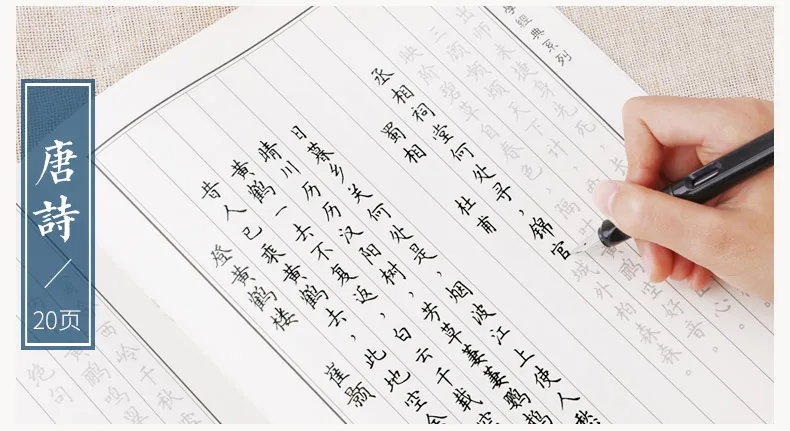 唐詩
20页
登黄鹤楼 崔颢
昔人已乘黄鹤去,此地空余
黄鹤一去不复返,白云千载空
晴川历历汉阳树,芳草萋萋鹦鹉
日暮乡关何处是,烟波江上使人愁
蜀相 杜甫
丞相祠堂何处寻,锦官
城外柏森森。
映阶碧草自春色,隔叶黄鹂空好音。
三顾频 天下计
出师未捷身先死
學經典系列
绝句
鹂鸣翠
西岭千秋